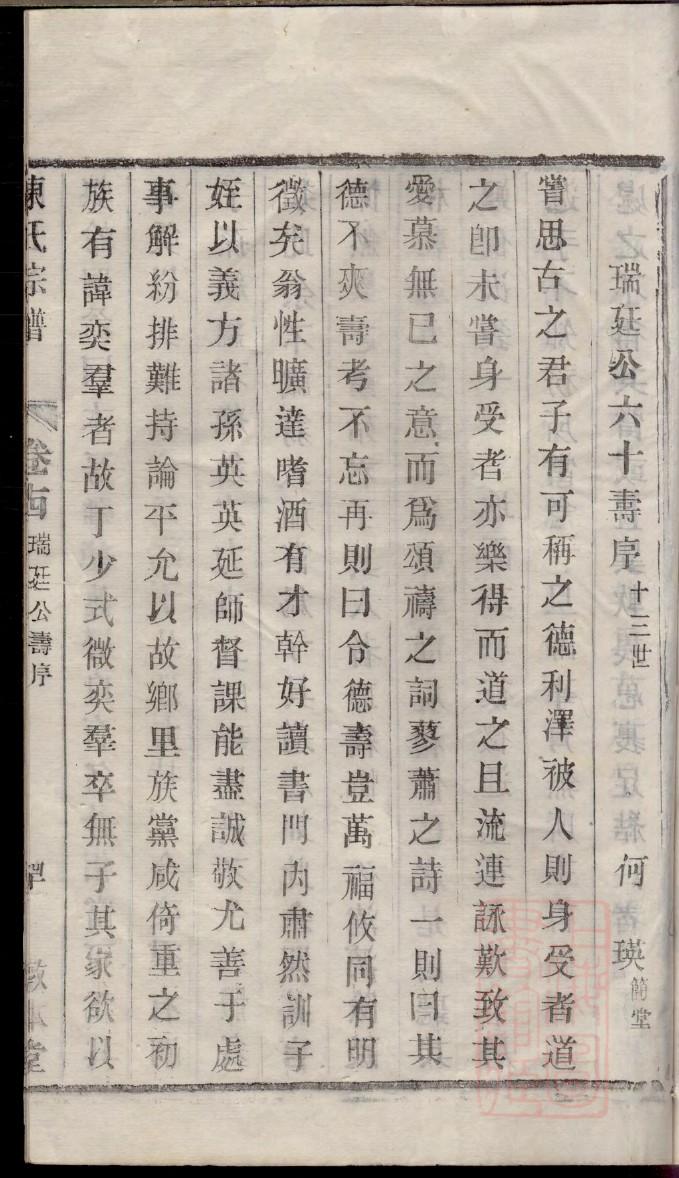 瑞廷公六十壽序 十三世 何瑛簡堂
嘗思古之君子有可稱之德利澤被人則身受者道
之卽未嘗身受者亦樂得而道之且流連詠歎致其
愛慕無已之意而爲頌禱之詞蓼蕭之詩一則曰其
德不爽壽考不忘再則曰令德壽豈萬福攸同有明
徵矣翁性曠達嗜酒有才幹好讀書門內肅然訓子
姪以義方諸孫英英延師督課能盡誠敬尤善于處
事解紛排難持論平允以故鄉里族黨咸倚重之初
族有諱奕羣者故丁少式微奕羣卒無子其家欲以
陳氏宗譜 卷十四 瑞廷公壽序 堂